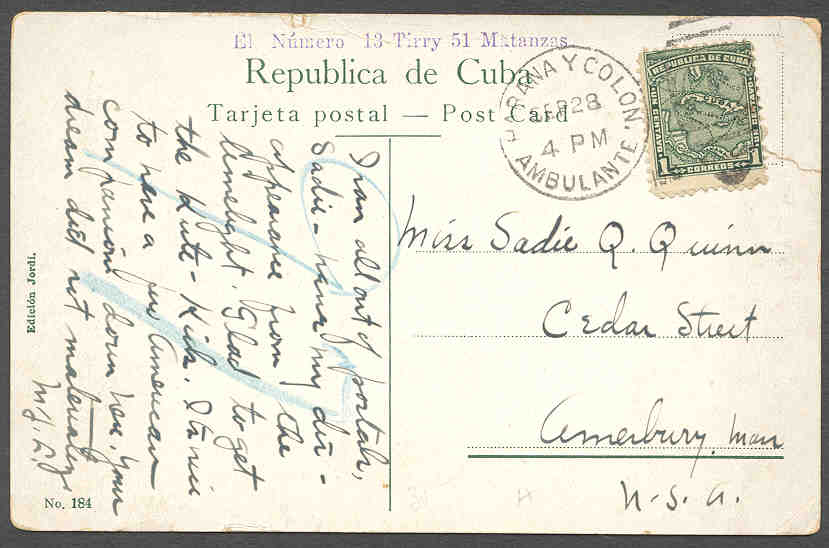 El Número 13-Tirry 51 Matanzas
Republica de Cuba
Tarjeta postal — Post Card
HABANA Y COLON,
FEB 28
4 PM
AMBULANTE
REPUBLICA DE CUBA
1 CORREOS 1
I ran all out of postals,
Sadie – hence my dis-
appearance from the
limelight. Glad to get
the
to have a American
companion down here. Your
dream did not materialize
M.J.
Miss Sadie Q. Quinn
Cedar Street
Amesbury, Mass
U.S.A.
Edición Jordi.
No. 184